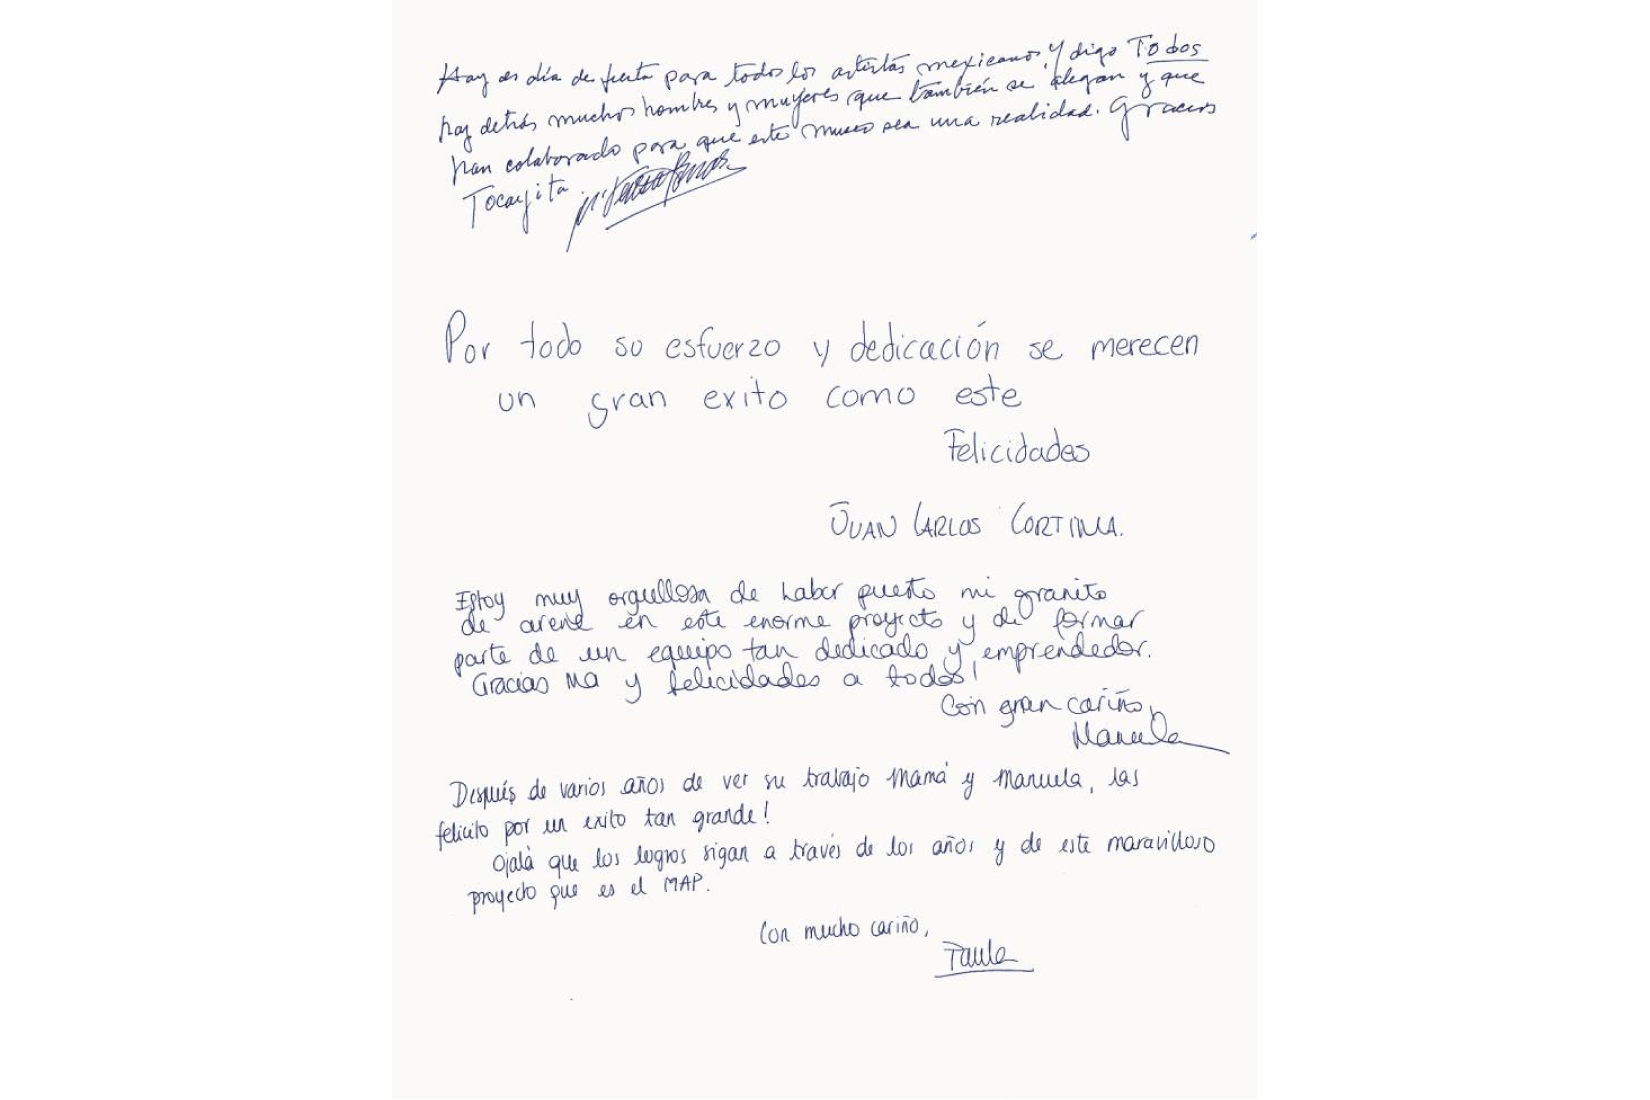 Hoy es día de fiesta para todos los artistas mexicanos, y digo Todos
hay detrás muchos hombres y mujeres que también se alegan y que
han colaborado para que este museo sea una realidad. Gracias
Tocayita
Por todo su esfuerzo y dedicación se merecen
un gran exito como este
Felicidades
JUAN CARLOS CORTINA.
Estoy muy orgullosa de haber puesto mi granito
de arena en este enorme proyecto y de formar
parte de un equipo tan dedicado y emprendedor.
Gracias Ma y felicidades a todos!
Con gran cariño,
Manuela
Después de varios años de ver su trabajo Mamá y Manuela, las
felicito por un exito tan grande!
Ojalá que los logros sigan a través de los años y de este maravilloso
proyecto que es el MAP.
Con mucho cariño,
Paula